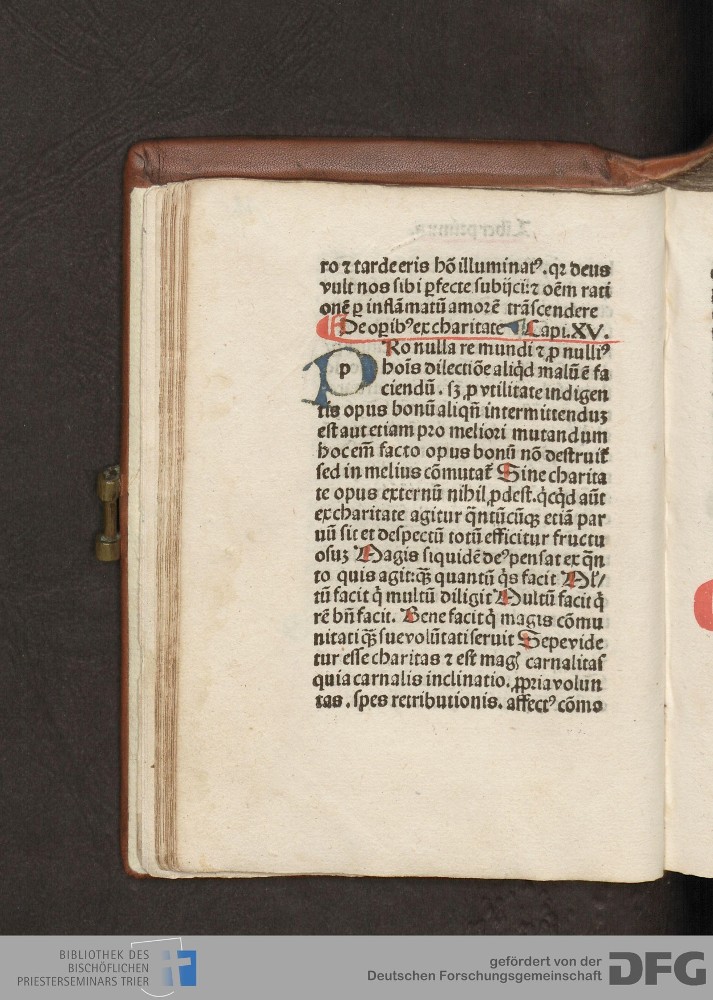 ro ⁊ tarde eris hõ illuminatꝰ. qꝛ deus
vult nos sibi ꝑfecte subijci: ⁊ oẽm rati
onẽ ꝑ inflãmatũ amorẽ trãscendere
De oꝑibꝰ ex charitate Capi. XV.
PRo nulla re mundi ⁊ ꝓ nulliꝰ
hoĩs dilectiõe aliq̇d malũ ẽ fa
ciendũ. sꝫ ꝓ vtilitate indigen
tis opus bonũ aliqñ intermittenduꝫ
est aut etiam pro meliori mutandum
hoc em̃ facto opus bonũ nõ destruit᷑
sed in melius cõmutat᷑ Sine charita
te opus externũ nihil ꝓdest. q̇cq̇d aũt
ex charitate agitur q̃ntũcũqꝫ etiã par
uũ sit et despectũ totũ efficitur fructu
osuꝫ Magis siquidẽ deꝰ pensat ex q̃n
to quis agit: qꝫ̃ quantũ q̇s facit Mł/
tũ facit q̇ multũ diligit Multũ facit q̇
rẽ bñ facit. Bene facit q̇ magis cõmu
nitati qꝫ̃ sue volũtati seruit Sepe vide
tur esse charitas ⁊ est mag̃ carnalitas
quia carnalis inclinatio. ꝓpria volun
tas. spes retributionis. affectꝰ cõmo
BIBLIOTHEK DES
BISCHÖFLICHEN
PRIESTERSEMINARS TRIER
gefördert von der
Deutschen Forschungsgemeinschaft DFG